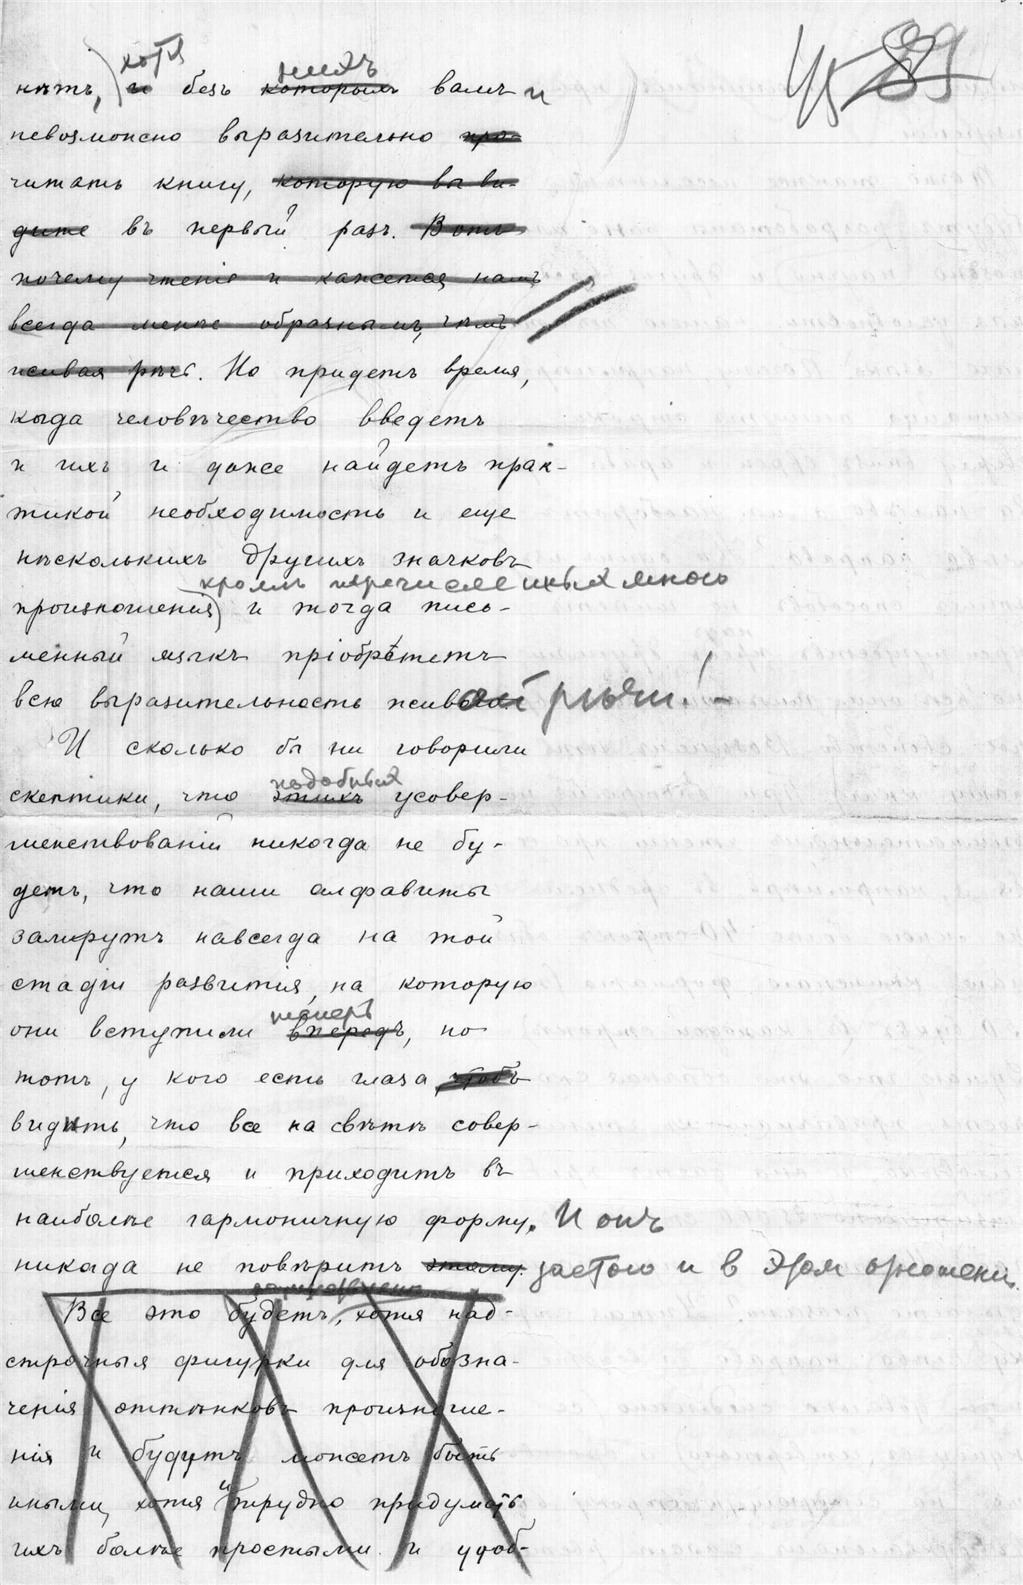 45 89
хотя нихъ
нѣтъ, и безъ которыхъ вамъ и
невозможно выразительно про-
читать книгу, которую вы ви-
дите въ первый разъ. Вотъ
почему чтеніе и кажется намъ
всегда менѣе образнымъ, чѣмъ
живая рѣчь. Но придетъ время,
когда человѣчество введетъ
и ихъ и даже найдетъ прак-
тикой необходимость и еще
нѣсколькихъ другихъ значковъ
кромѣ перечисленныхъ мною
произношенія, и тогда пись-
менный языкъ пріобрѣтетъ
всю выразительность живой рѣчи! –
И сколько бы ни говорили
подобныхъ
скептики, что этихъ усовер-
шенствованій никогда не бу-
детъ, что наши алфавиты
замрутъ навсегда на той
стадіи развитія, на которую
теперь
они вступили впередъ, но
тотъ, у кого есть глаза, чтобъ
видѣть, что все на свѣтѣ совер-
шенствуется и приходитъ въ
наиболѣе гармоничную форму. И онъ
никогда не повѣритъ этому. застою и в этом отношени.
Все это будетъ, хотя над-
строчныя фигурки для обозна-
ченія оттѣнковъ произноше-
нія и будутъ можетъ быть
иными, хотя и трудно придумать
ихъ болѣе простыми и удоб-